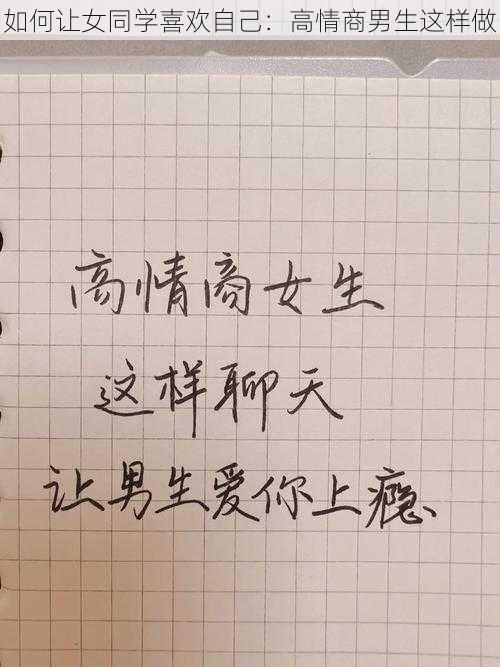 如何让女同学喜欢自己：高情商男生这样做
高情商女生
这样聊天
让男生爱你上瘾